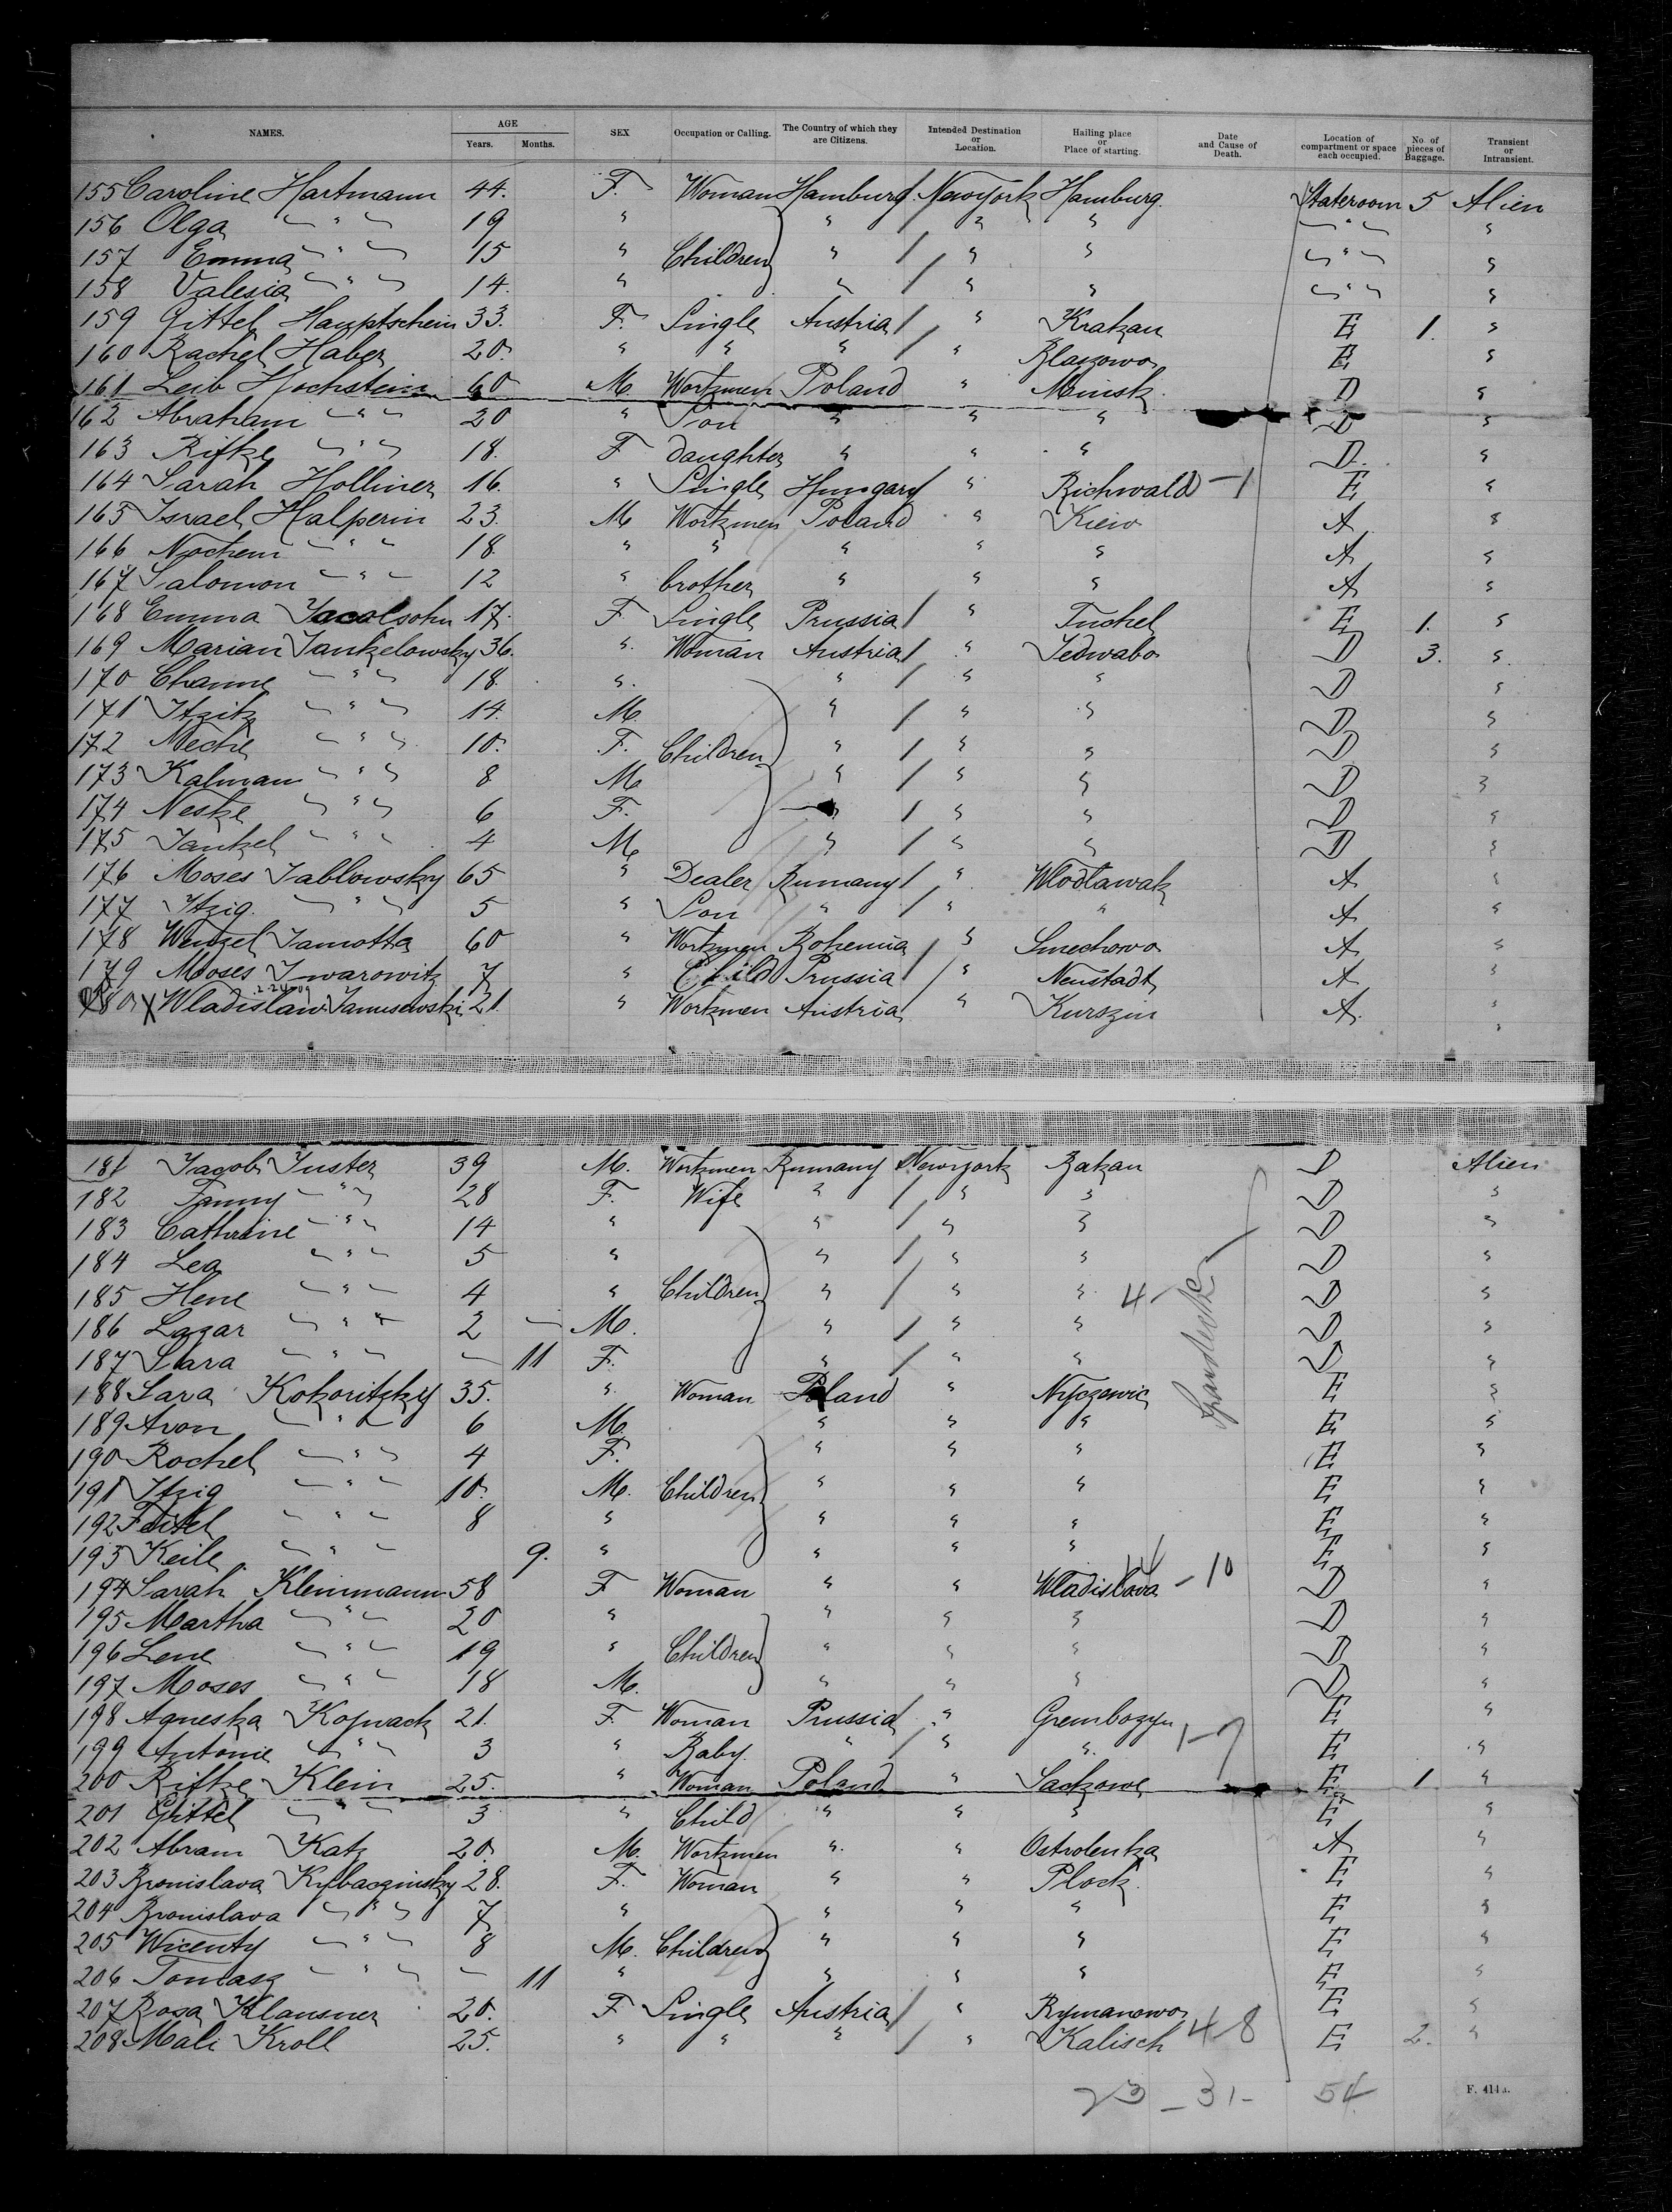 NAMES. AGE Years. Months. SEX Occupation or Calling. The Country of which they are Citizens. Intended Destination or Location. Hailing place or Place of starting. Date and Cause of Death. Location of compartment or space each occupied. No. of pieces of Baggage. Transient or Intransient.
155 Caroline Hartmann 44. F. Woman Hamburg New York Hamburg Stateroom 5 Alien
156 Olga " 19 " " " " " "
157 Emma " 15 " Children " " " " "
158 Valesia " 14. " " " " " "
159 Gittel Hauptschein 33. F. Single Austria " Krakau E 1. "
160 Rachel Haber 20. " " " " Blazowo E "
161 Leib Hochstein 60 M. Workmen Poland " Minsk D "
162 Abraham " 20 " Son " " " D "
163 Rifke " 18. F daughter " " " D. "
164 Sarah Holliner 16. " Single Hungary " Richwald - 1 E "
165 Israel Halperin 23. M Workmen Poland " Kiew A "
166 Nochem " 18. " " " " " A "
167 Salomon " 12 " brother " " " A "
168 Emma Jacolsohn 17. F Single Prussia " Tuchel E 1. "
169 Marian Jankelowsky 36. " Woman Austria " Jedwabo D 3. "
170 Channe " 18. " " " " D "
171 Itzik " 14. M. " " " D "
172 Meche " 10. F. Children " " " D "
173 Kalman " 8 M " " " D "
174 Neske " 6 F. " " " D "
175 Jankel " 4 M. " " " D "
176 Moses Jablowsky 65 " Dealer Rumany " Wlodlawak A "
177 Itzig " 5 " Son " " " A "
178 Wenzel Jamotta 60 " Workmen Bohemia " Smechowo A "
179 Moses Iwarowitz 7 " Child Prussia " Neustadt A "
180 X Wladislaw Janusewski 21. " Workmen Austria " Kurszin A. "
181 Jacob Juster 39 M. Workmen Rumany New york Bakau D Alien
182 Fanny " 28 F. Wife " " " D "
183 Cathrine " 14 " " " " D "
184 Lea " 5 " " " " D "
185 Hene " 4 " Children " " " 4 - D "
186 Lazar " 2 - M. " " " D "
187 Sara " - 11 F. " " " D "
188 Sara Kokoritzky 35. " Woman Poland " Nyczawic E "
189 Aron " 6 M. " " " E "
190 Rochel " 4 F. " " " E "
191 Itzig " 10. M. Children " " " E "
192 Feitel " 8 " " " " E "
193 Keile " 9. " " " " E "
194 Sarah Kleinmann 58 F Woman " " Wladislava - 10 D "
195 Martha " 20 " " " " D "
196 Lene " 19 " Children " " " D "
197 Moses " 18 M. " " " D "
198 Agneska Kopwack 21. F. Woman Prussia " Grembozyn E "
199 Antonie " 3 " Baby. " " " 1-7 E "
200 Rifke Klein 25. " Woman Poland " Sackowe E 1. "
201 Gittel " 3 " Child " " " E "
202 Abram Katz 20. M. Workmen " " Ostrolenka A "
203 Bronislava Kybaczinsky 28. F. Woman " " Plock E "
204 Bronislava " 7 " " " " E "
205 Wicenty " 8 M. Children " " " E "
206 Tomasz " - 11 " " " " E "
207 Rosa Klausner 20. F Single Austria " Rymanowo E "
208 Mali Kroll 25. " " " " Kalisch 4-8 E 2. "
23 - 31 - 54
F. 414 a.